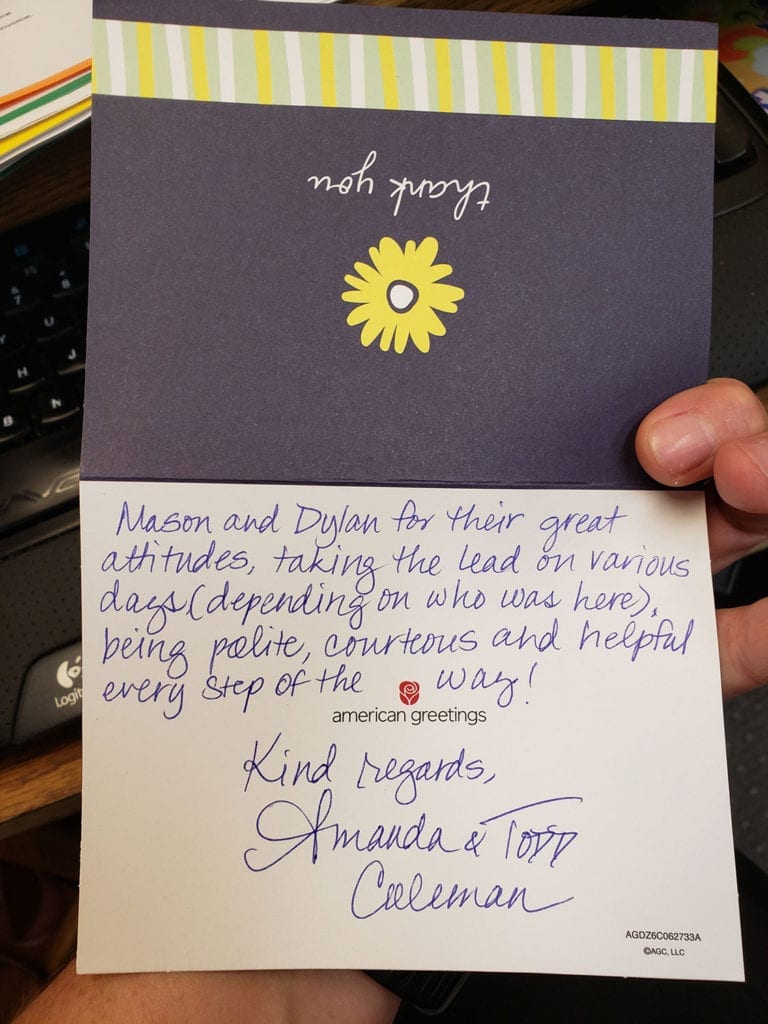 thank you
Mason and Dylan for their great
attitudes, taking the lead on various
days (depending on who was here),
being polite, courteous and helpful
every step of the way!
american greetings
Kind regards,
Amanda & Todd
Coleman
AGDZ6C062733A
©AGC, LLC
Logit
7
8
U
H
J
B
N